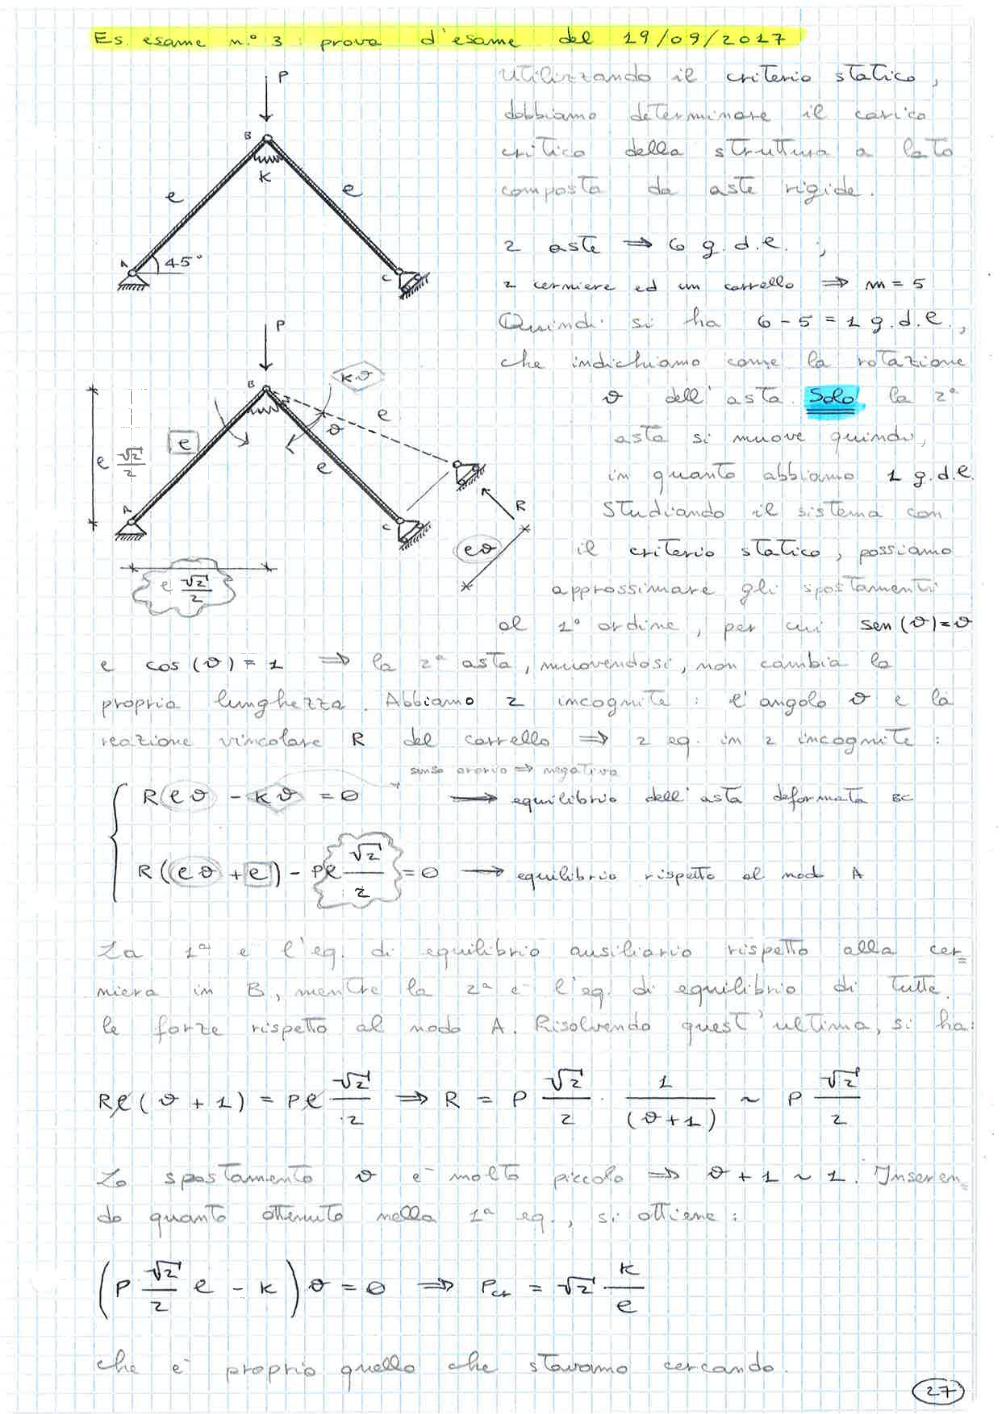 Es. esame n.° 3 : prova d'esame del 19/09/2017
P
B
K
e
e
A
45°
C
Utilizzando il criterio statico,
dobbiamo determinare il carico
critico della struttura a lato
composta da aste rigide.
2 aste ⇒ 6 g.d.l. ;
2 cerniere ed un carrello ⇒ m = 5
Quindi si ha 6 - 5 = 1 g.d.l.,
che indichiamo come la rotazione
ϑ dell'asta. Solo la 2ª
asta si muove quindi,
in quanto abbiamo 1 g.d.l.
Studiando il sistema con
il criterio statico, possiamo
approssimare gli spostamenti
al 1° ordine, per cui sen(ϑ)=ϑ
P
B
Kϑ
e
ϑ
e
e
e √2/2
A
C
R
eϑ
e √2/2
e cos(ϑ) = 1 ⇒ la 2ª asta, muovendosi, non cambia la
propria lunghezza. Abbiamo 2 incognite : l'angolo ϑ e la
reazione vincolare R del carrello ⇒ 2 eq. in 2 incognite :
senso orario ⇒ negativa
R eϑ - Kϑ = 0 → equilibrio dell'asta deformata BC
R(eϑ + e) - Pe √2/2 = 0 → equilibrio rispetto al nodo A
La 1ª è l'eq. di equilibrio ausiliario rispetto alla cer=
niera in B, mentre la 2ª è l'eq. di equilibrio di tutte
le forze rispetto al nodo A. Risolvendo quest'ultima, si ha:
Re(ϑ + 1) = Pe √2/2 ⇒ R = P √2/2 · 1/(ϑ+1) ~ P √2/2
Lo spostamento ϑ è molto piccolo ⇒ ϑ + 1 ~ 1. Inseren=
do quanto ottenuto nella 1ª eq., si ottiene :
(P √2/2 e - K) ϑ = 0 ⇒ Pcr = √2 K/e
che è proprio quello che stavamo cercando.
27